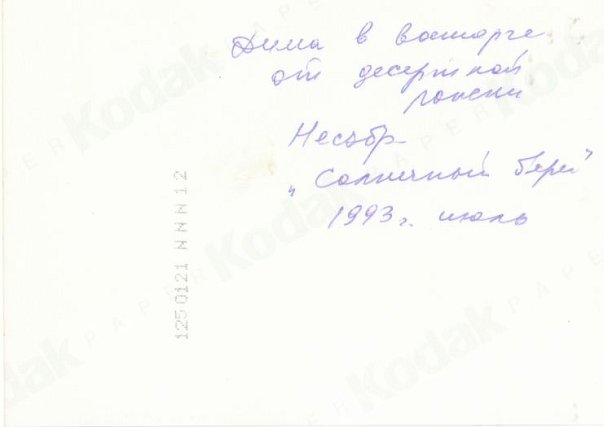 Дима в восторге
от десертной
ложки
Несебр
„Солнечный берег"
1993 г. июль
1250121 NNNN 12
Kodak
PAPER
Kodak
PAPER
Kodak
PAPER
Kodak
PAPER
Kodak